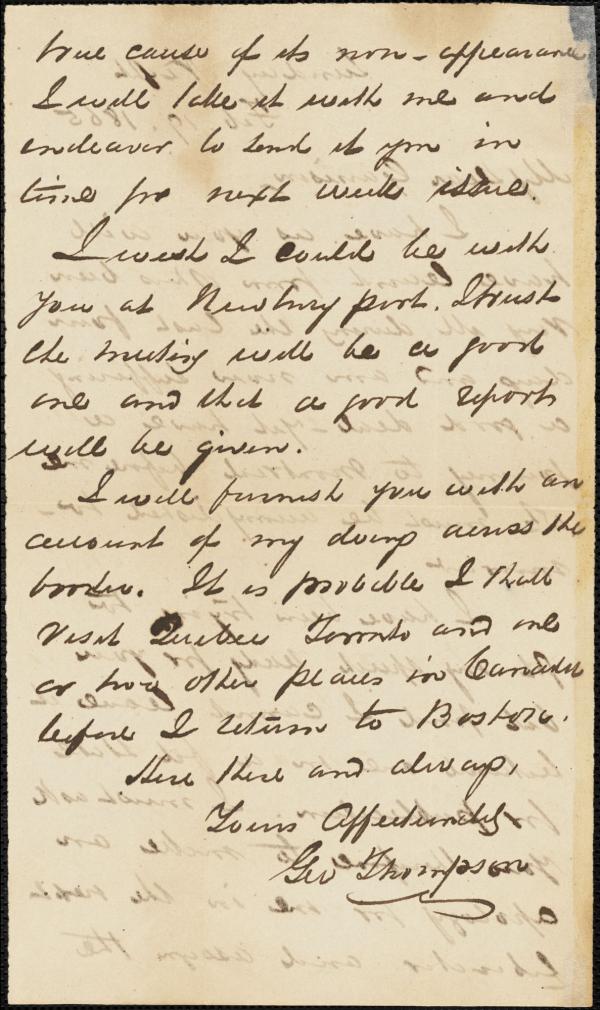 true cause of its non-appearance
I will take it with me and
endeavor to send it you in
time for next week issue.
I wish I could be with
you at Newburyport. I trust
the meeting will be a good
one and that a good report
will be given.
I will furnish you with an
account of my doings across the
border. It is probable I shall
visit Quebec Toronto and one
or two other places in Canada
before I return to Boston.
Here there and always,
Yours Affectionately
Geo Thompson